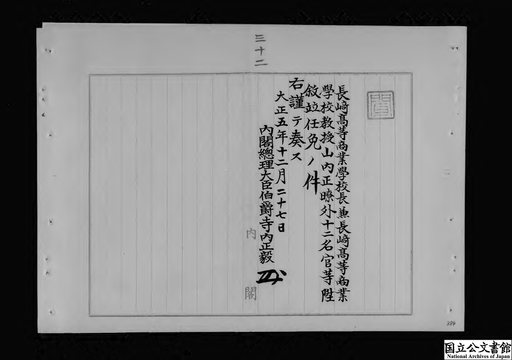 三十二
長崎高等商業學校長兼長崎高等商業
學校教授山内正瞭外十二名官等陞
敘竝任免ノ件
右謹テ奏ス
大正五年十二月二十七日
内閣總理大臣伯爵寺内正毅
内閣
国立公文書館
National Archives of Japan